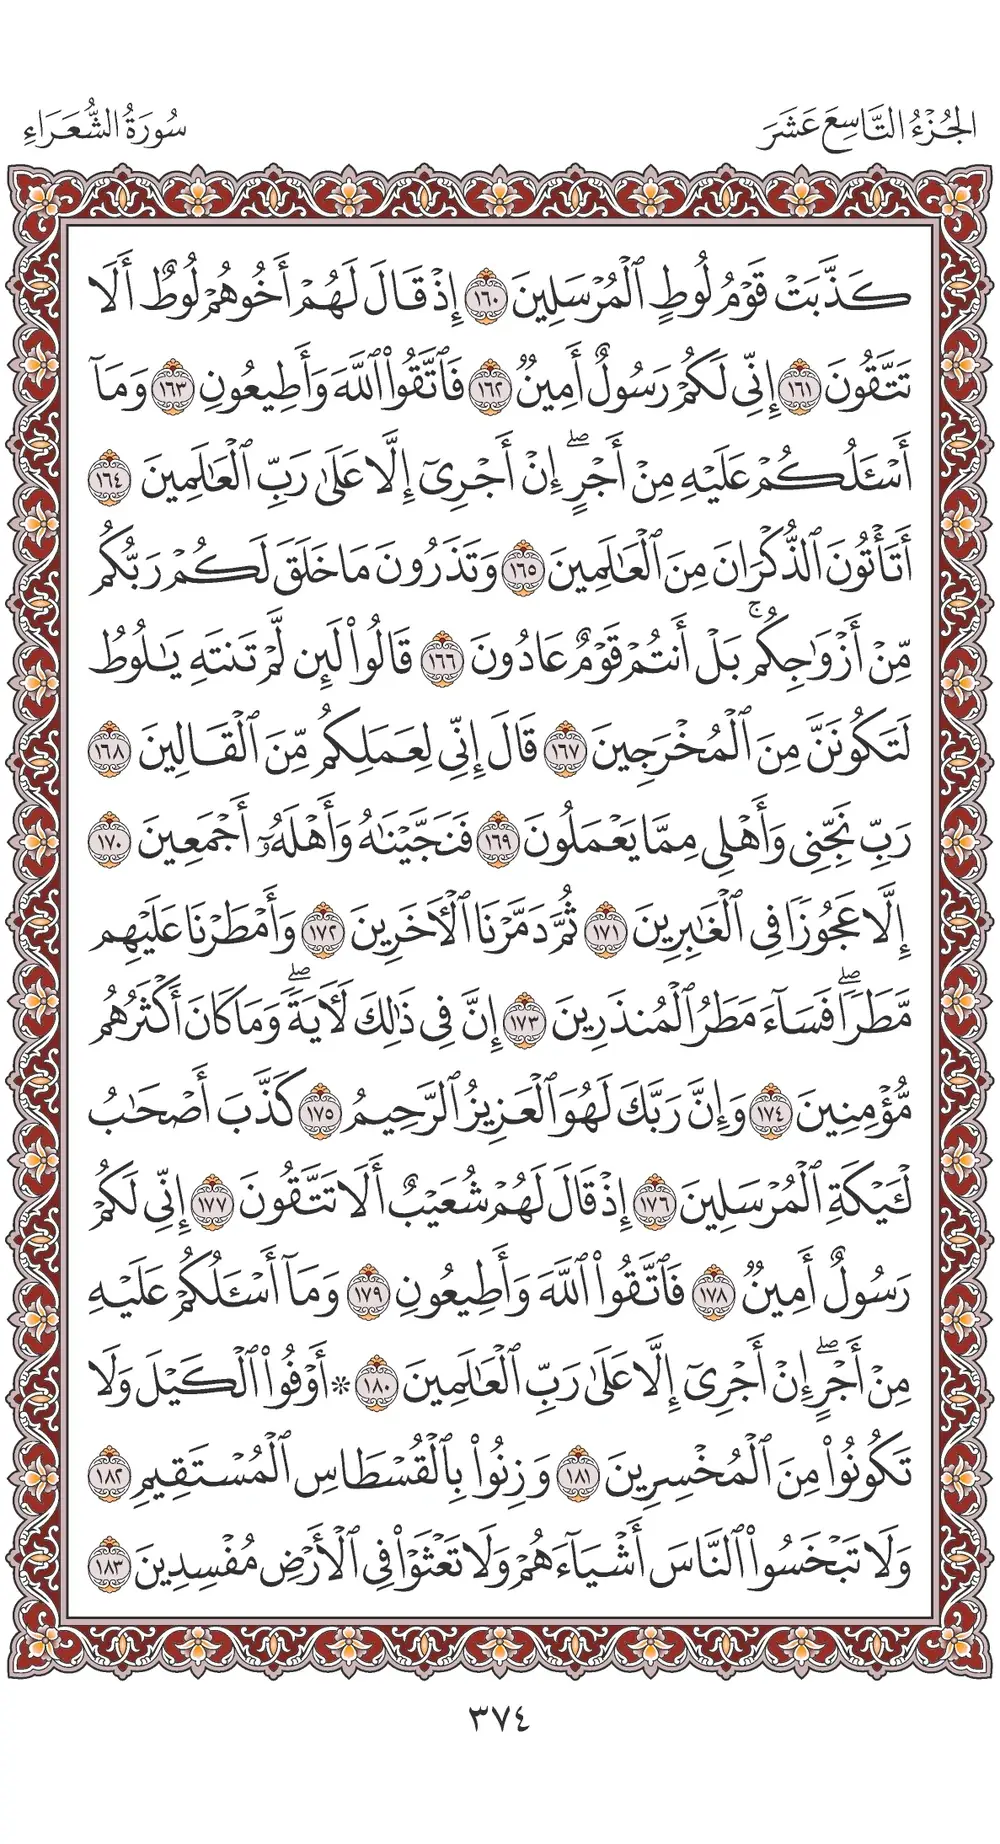 الجُزْءُ التَّاسِعَ عَشَرَ
سُورَةُ الشُّعَرَاءِ
كَذَّبَتْ قَوْمُ لُوطٍ ٱلْمُرْسَلِينَ ١٦٠ إِذْ قَالَ لَهُمْ أَخُوهُمْ لُوطٌ أَلَا
تَتَّقُونَ ١٦١ إِنِّي لَكُمْ رَسُولٌ أَمِينٌ ١٦٢ فَٱتَّقُوا۟ ٱللَّهَ وَأَطِيعُونِ ١٦٣ وَمَآ
أَسْـَٔلُكُمْ عَلَيْهِ مِنْ أَجْرٍۖ إِنْ أَجْرِىَ إِلَّا عَلَىٰ رَبِّ ٱلْعَـٰلَمِينَ ١٦٤
أَتَأْتُونَ ٱلذُّكْرَانَ مِنَ ٱلْعَـٰلَمِينَ ١٦٥ وَتَذَرُونَ مَا خَلَقَ لَكُمْ رَبُّكُم
مِّنْ أَزْوَٰجِكُمۚ بَلْ أَنتُمْ قَوْمٌ عَادُونَ ١٦٦ قَالُوا۟ لَئِن لَّمْ تَنتَهِ يَـٰلُوطُ
لَتَكُونَنَّ مِنَ ٱلْمُخْرَجِينَ ١٦٧ قَالَ إِنِّى لِعَمَلِكُم مِّنَ ٱلْقَالِينَ ١٦٨
رَبِّ نَجِّنِى وَأَهْلِى مِمَّا يَعْمَلُونَ ١٦٩ فَنَجَّيْنَـٰهُ وَأَهْلَهُۥٓ أَجْمَعِينَ ١٧٠
إِلَّا عَجُوزًا فِى ٱلْغَـٰبِرِينَ ١٧١ ثُمَّ دَمَّرْنَا ٱلْـَٔاخَرِينَ ١٧٢ وَأَمْطَرْنَا عَلَيْهِم
مَّطَرًاۖ فَسَآءَ مَطَرُ ٱلْمُنذَرِينَ ١٧٣ إِنَّ فِى ذَٰلِكَ لَـَٔايَةًۖ وَمَا كَانَ أَكْثَرُهُم
مُّؤْمِنِينَ ١٧٤ وَإِنَّ رَبَّكَ لَهُوَ ٱلْعَزِيزُ ٱلرَّحِيمُ ١٧٥ كَذَّبَ أَصْحَـٰبُ
لْـَٔيْكَةِ ٱلْمُرْسَلِينَ ١٧٦ إِذْ قَالَ لَهُمْ شُعَيْبٌ أَلَا تَتَّقُونَ ١٧٧ إِنِّى لَكُمْ
رَسُولٌ أَمِينٌ ١٧٨ فَٱتَّقُوا۟ ٱللَّهَ وَأَطِيعُونِ ١٧٩ وَمَآ أَسْـَٔلُكُمْ عَلَيْهِ
مِنْ أَجْرٍۖ إِنْ أَجْرِىَ إِلَّا عَلَىٰ رَبِّ ٱلْعَـٰلَمِينَ ١٨٠ * أَوْفُوا۟ ٱلْكَيْلَ وَلَا
تَكُونُوا۟ مِنَ ٱلْمُخْسِرِينَ ١٨١ وَزِنُوا۟ بِٱلْقِسْطَاسِ ٱلْمُسْتَقِيمِ ١٨٢
وَلَا تَبْخَسُوا۟ ٱلنَّاسَ أَشْيَآءَهُمْ وَلَا تَعْثَوْا۟ فِى ٱلْأَرْضِ مُفْسِدِينَ ١٨٣
٣٧٤